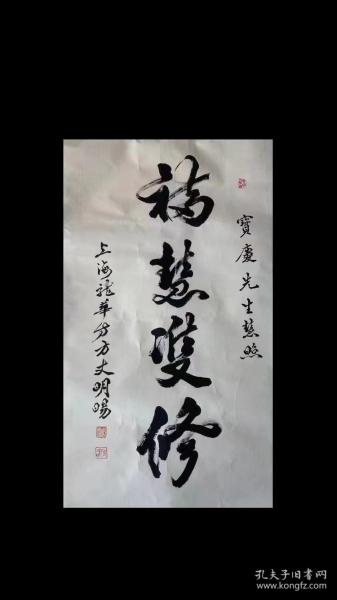 寶慶先生慧照
福慧雙修
上海龍華寺方丈明暘
孔夫子旧书网
www.kongfz.com